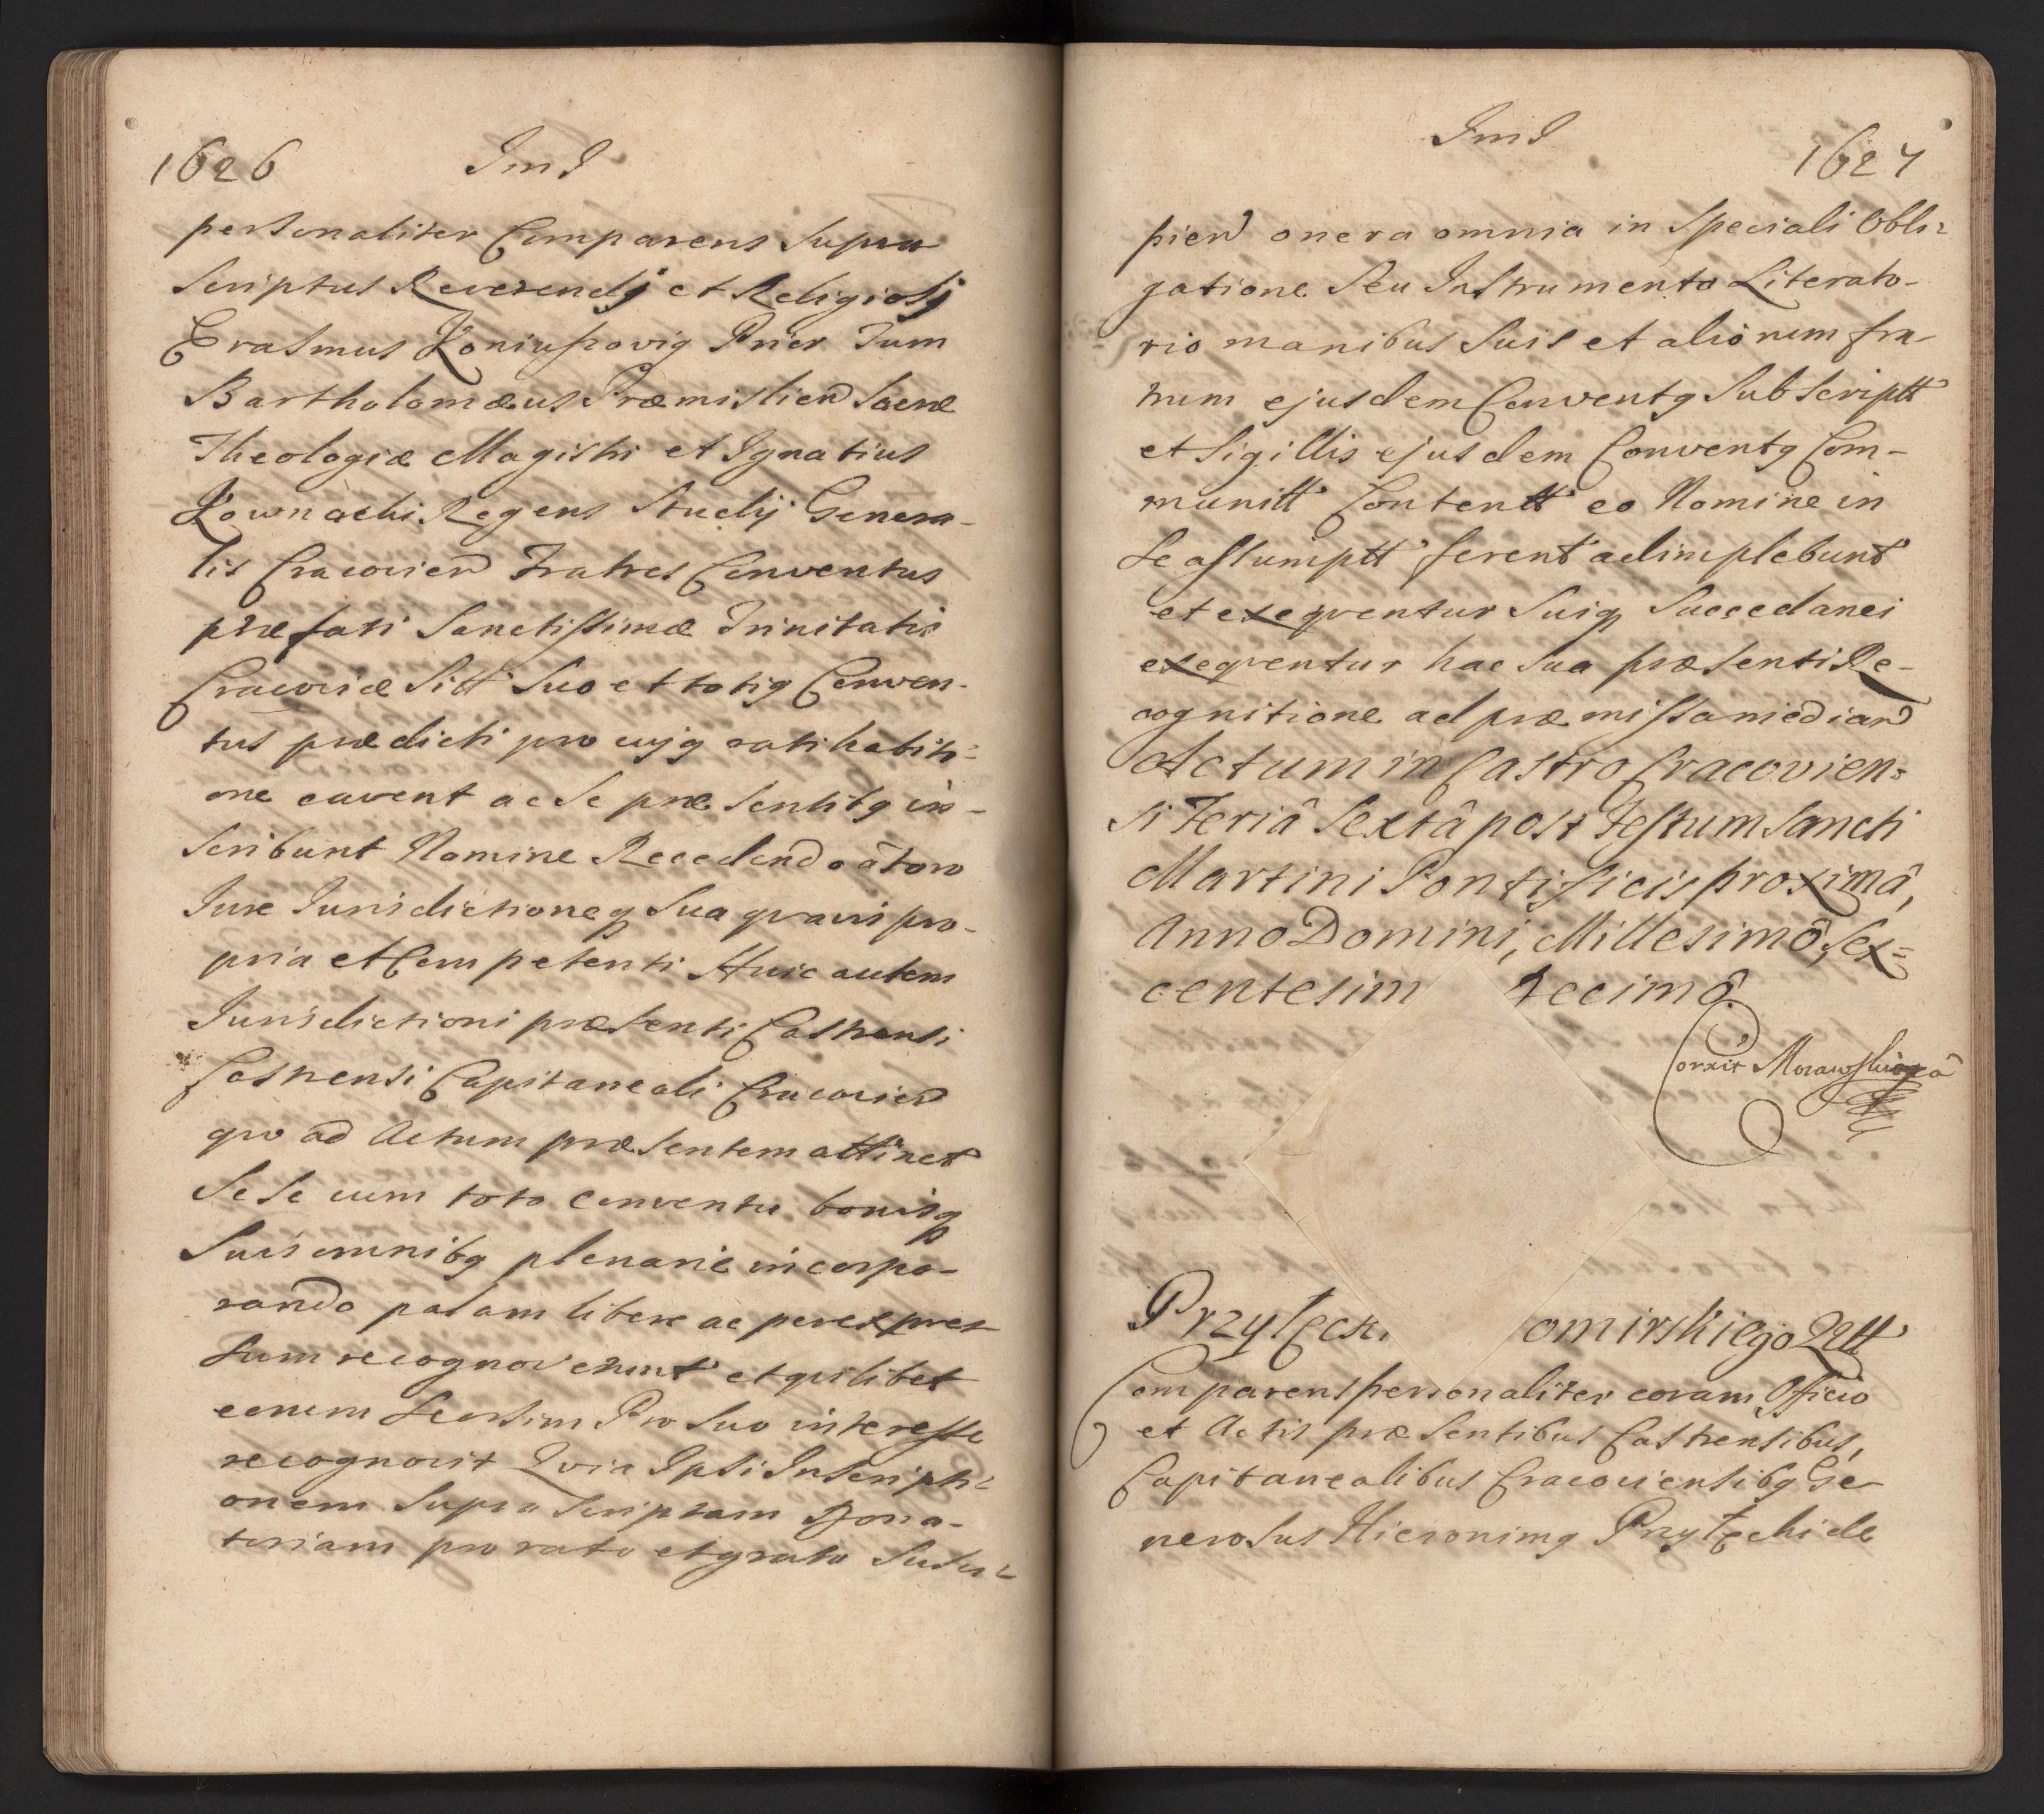 1626
personaliter Comparens Supra
Scriptus Reverendq et Religiosq
Erasmus Koniuszovig Prior Tum
Bartholomæus Præmislien Sacræ
Theologiæ Magistri et Ignatius
Kownacki Regens Studij Genera-
lis Cracovien Fratres Conventus
præfati Sanctissimæ Trinitatis
Cracoviæ Sitt Suo et totiq Conven-
tus prædicti pro cujq ratihabiti-
one cavent ac Se præsentibq in-
scribunt Nomine Recedend o ãtoro
Iure Iurisdictioneq Sua qvavis pro-
pria et Competenti Huic autem
Iurisdictioni præsenti Castrensi
Castrensi Capitaneali Cracovien
qvo ad Actum præsentem attinet
Sese cum toto Conventu bonisq
Suis omnibq plenarie incorpo-
rando palam libere ac per expres
Sum recognoverunt et qvilibet
eorum Seorsim Pro Suo interesse
recognovit Qvia Ipsi Inscripti-
onem Supra Scriptam Dona-
toriam pro rato et grato Susci-
1627
pien onera omnia in Speciali Obli-
gatione Seu Instrumento Literato-
rio manibus Suis et aliorum fra-
trum ejusdem Conventq Subscriptt
et Sigillis ejusdem Conventq Com-
munitt Contentt eo Nomine in
Se assumptt ferent adimplebunt
et exeqventur Suiq Succedanei
exeqventur hac Sua præsenti Re-
cognitione ad præmissa median
Actum in Castro Cracovien-
si Feriâ Sextâ post Festum Sancti
Martini Pontificis proximâ,
Anno Domini, Millesimô, Sex-
centesim decimô.
Correxit Morawski
Przyłęck omirskiego Qtt
Comparens personaliter coram Officio
et Actis præsentibus Castrensibus,
Capitanealibus Cracoviensibq Ge-
nerosus Hieronimq Przyłęcki de